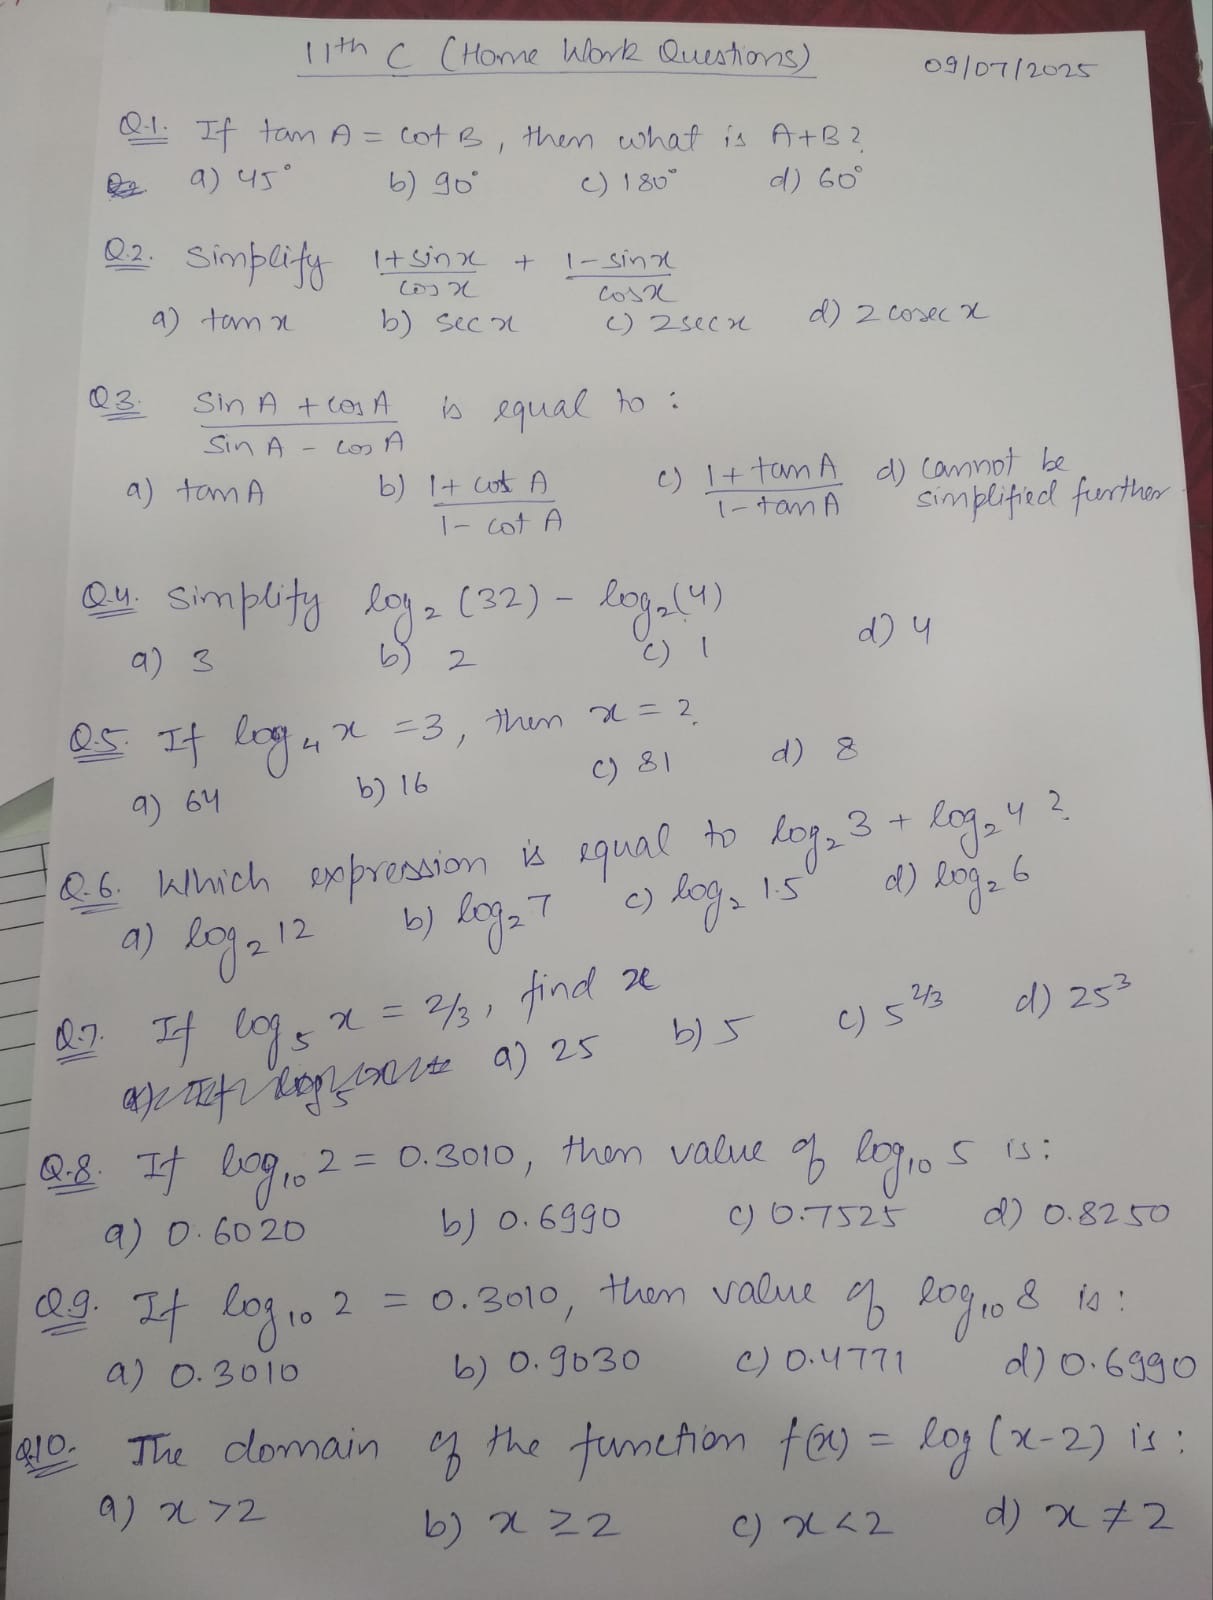 11th C (Home Work Questions) 09/07/2025
Q.1. If tan A = cot B, then what is A+B?
a) 45° b) 90° c) 180° d) 60°
Q.2. Simplify (1+sin x)/(cos x) + (1-sin x)/(cos x)
a) tan x b) sec x c) 2 sec x d) 2 cosec x
Q.3. (Sin A + cos A)/(Sin A - cos A) is equal to :
a) tan A b) (1+ cot A)/(1- cot A) c) (1+ tan A)/(1- tan A) d) cannot be
simplified further
Q.4. Simplify log₂ (32) - log₂(4)
a) 3 b) 2 c) 1 d) 4
Q.5. If log₄ x = 3, then x = ?
a) 64 b) 16 c) 81 d) 8
Q.6. Which expression is equal to log₂ 3 + log₂ 4 ?
a) log₂ 12 b) log₂ 7 c) log₂ 1.5 d) log₂ 6
Q.7. If log₅ x = 2/3, find x
a) 25 b) 5 c) 5^2/3 d) 25³
Q.8. If log₁₀ 2 = 0.3010, then value of log₁₀ 5 is:
a) 0.6020 b) 0.6990 c) 0.7525 d) 0.8250
Q.9. If log₁₀ 2 = 0.3010, then value of log₁₀ 8 is:
a) 0.3010 b) 0.9030 c) 0.4771 d) 0.6990
Q.10. The domain of the function f(x) = log (x-2) is:
a) x >2 b) x ≥ 2 c) x < 2 d) x ≠ 2